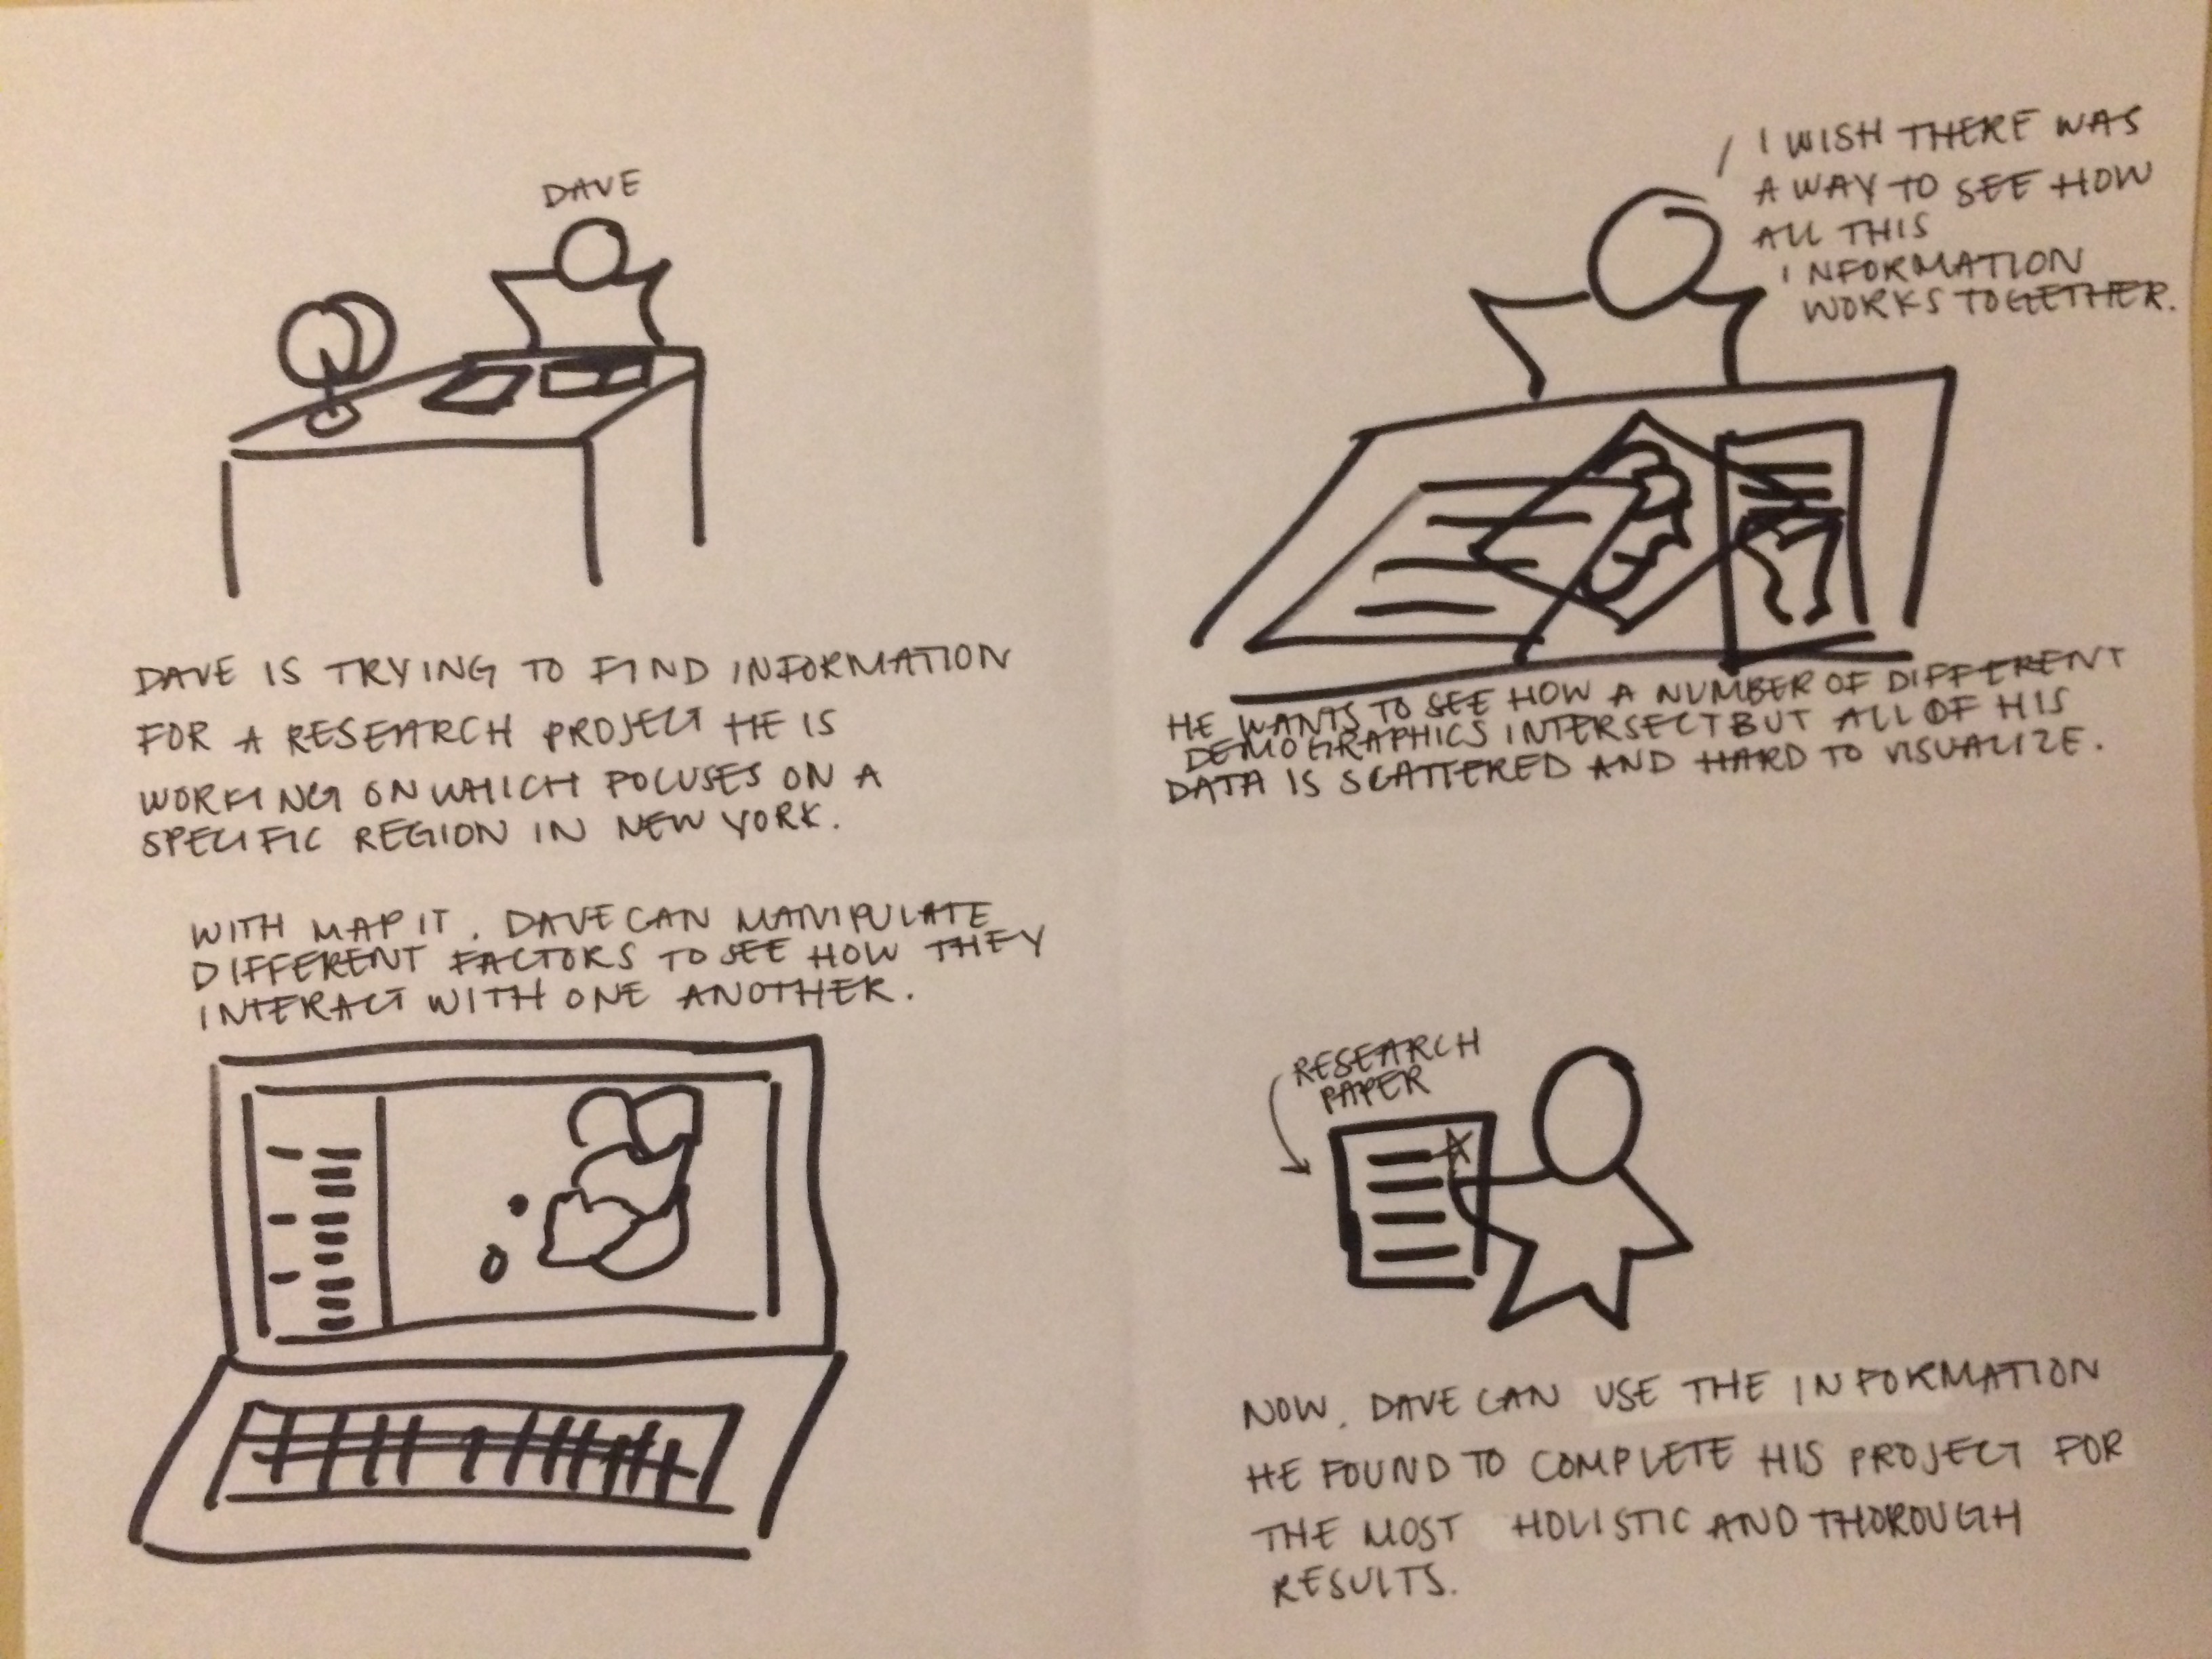 DAVE
DAVE IS TRYING TO FIND INFORMATION
FOR A RESEARCH PROJECT HE IS
WORKING ON WHICH FOCUSES ON A
SPECIFIC REGION IN NEW YORK.
I WISH THERE WAS
A WAY TO SEE HOW
ALL THIS
INFORMATION
WORKS TOGETHER.
HE WANTS TO SEE HOW A NUMBER OF DIFFERENT
DEMOGRAPHICS INTERSECT BUT ALL OF HIS
DATA IS SCATTERED AND HARD TO VISUALIZE.
WITH MAP IT, DAVE CAN MANIPULATE
DIFFERENT FACTORS TO SEE HOW THEY
INTERACT WITH ONE ANOTHER.
RESEARCH
PAPER
NOW, DAVE CAN USE THE INFORMATION
HE FOUND TO COMPLETE HIS PROJECT FOR
THE MOST HOLISTIC AND THOROUGH
RESULTS.